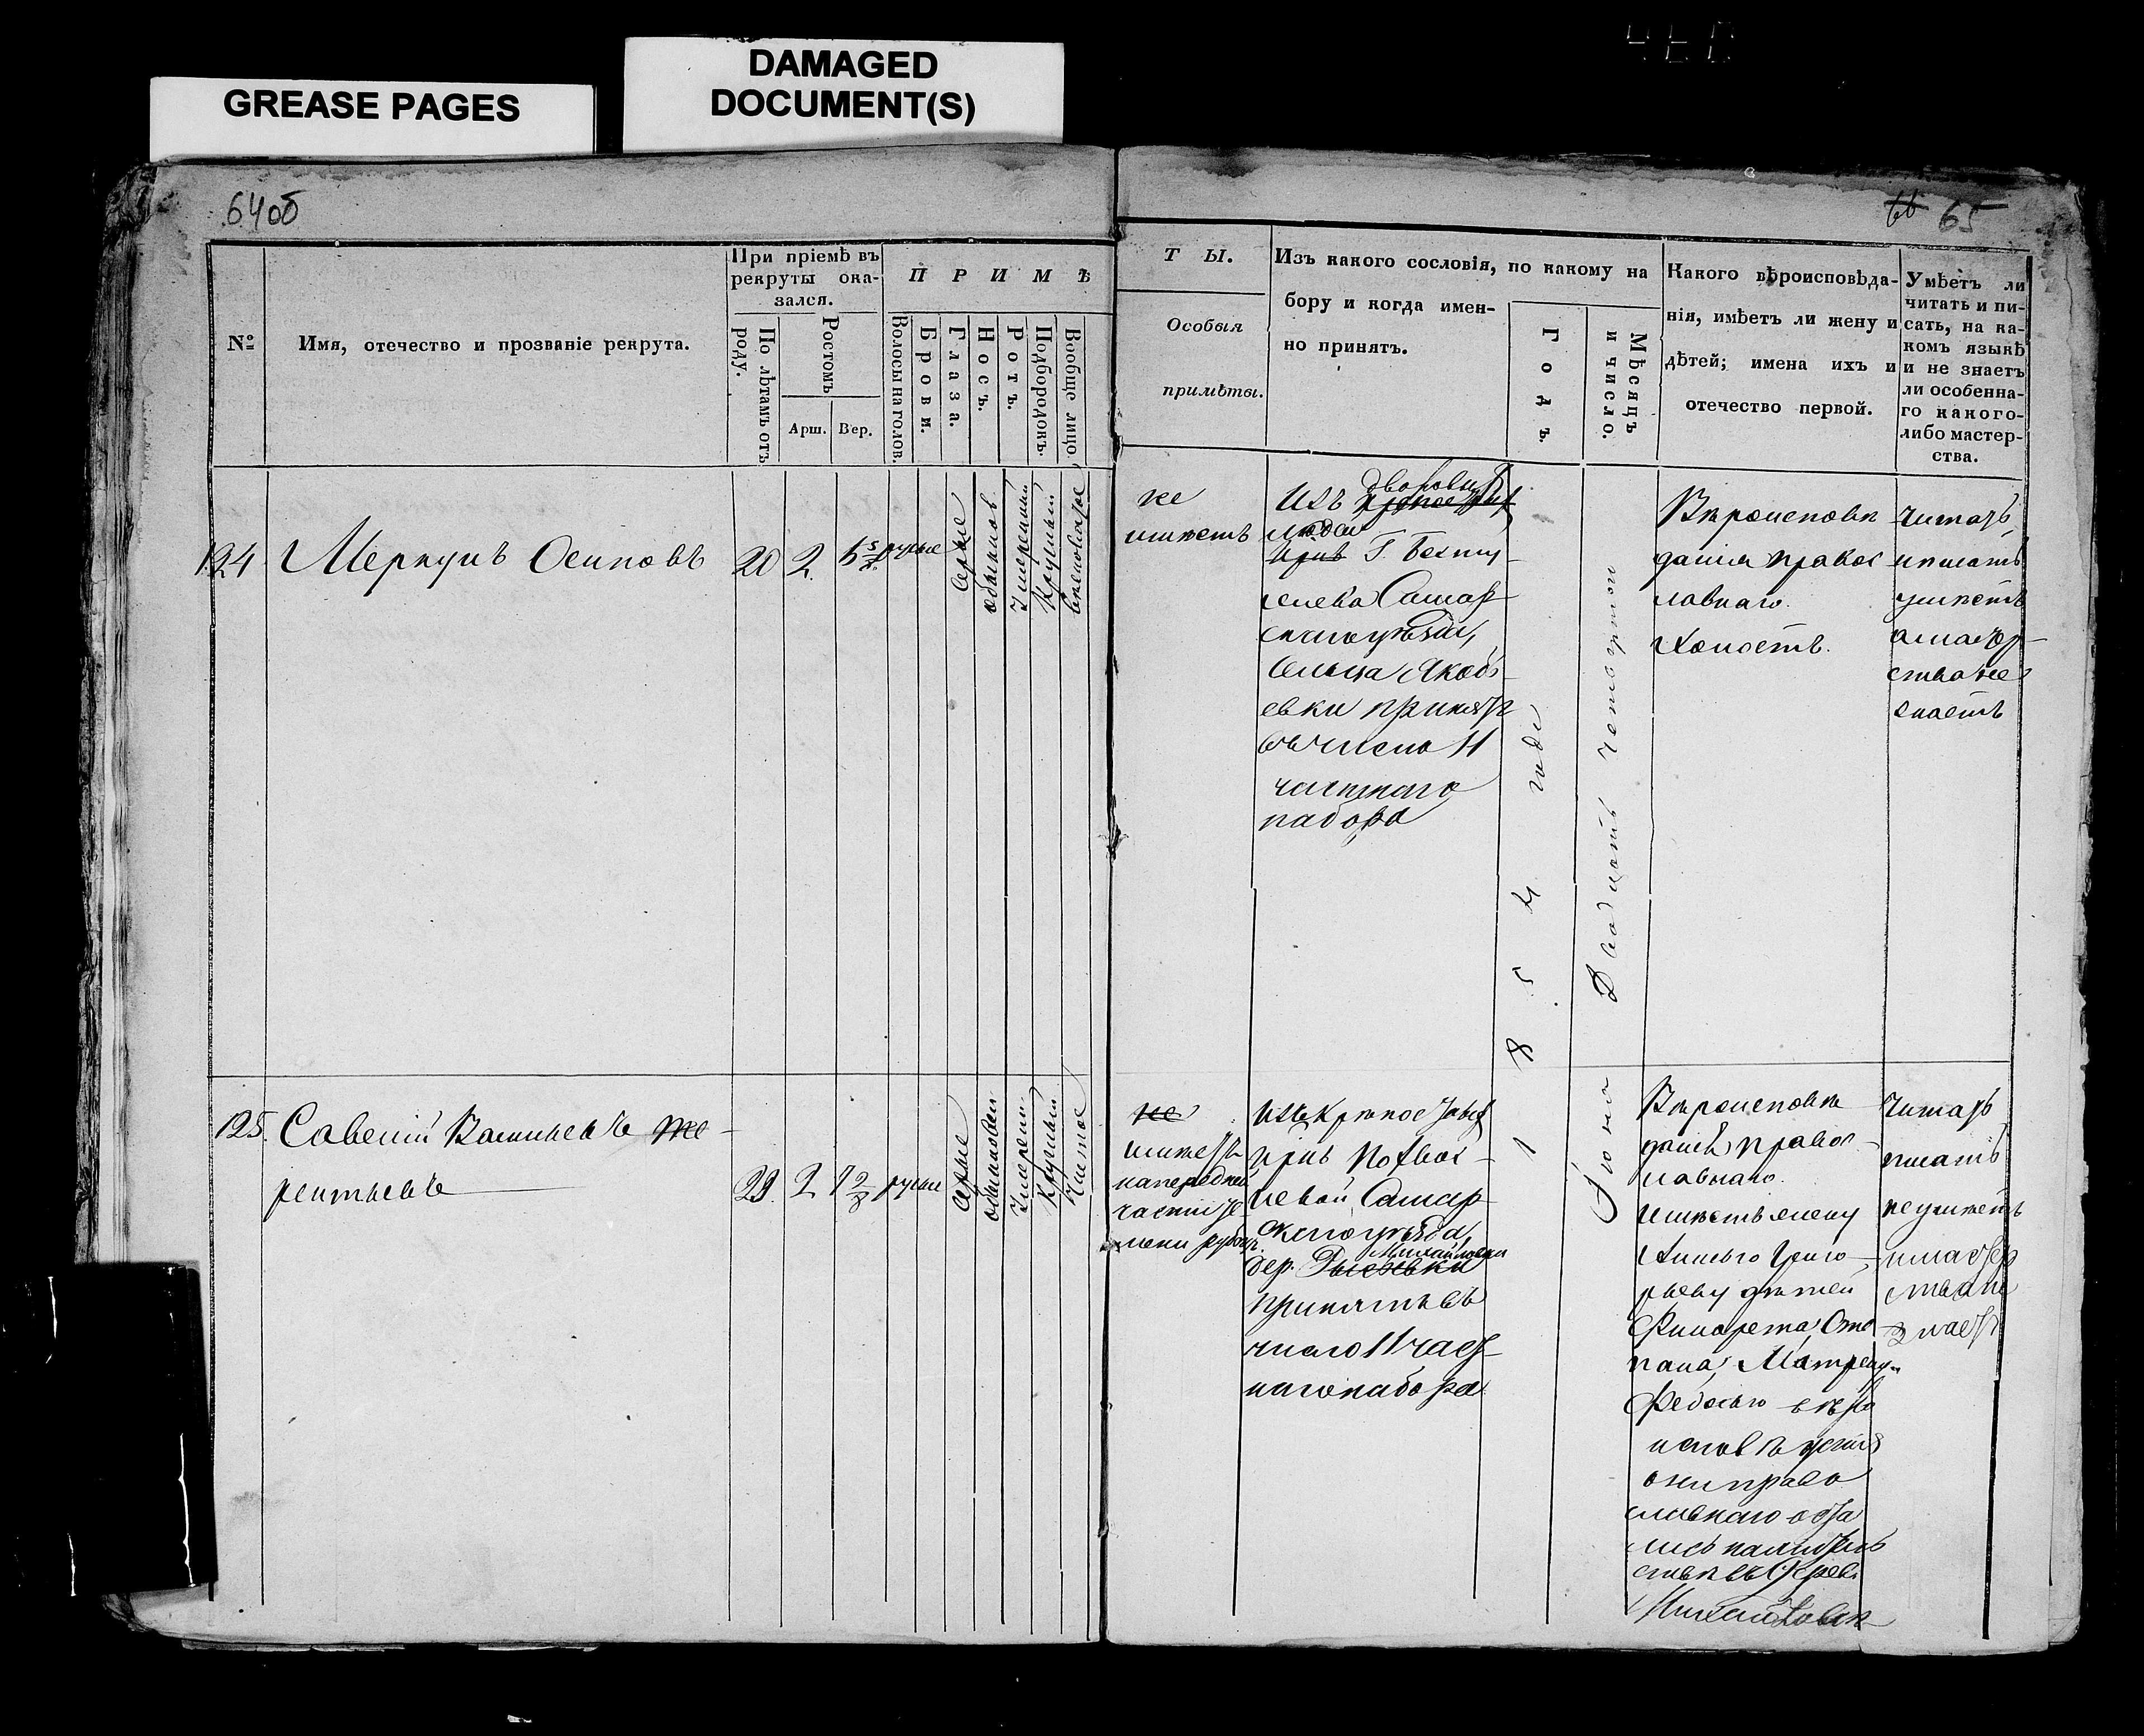 GREASE PAGES
DAMAGED
DOCUMENT(S)
64об
66 65
№
Имя, отечество и прозваніе рекрута.
При пріемѣ въ
рекруты ока-
зался.
По лѣтамъ отъ
роду.
Ростомъ
Арш.
Вер.
П Р И М Ѣ
Волосы на голов.
Брови.
Глаза.
Носъ.
Ротъ.
Подбородокъ.
Вообще лицо.
Т Ы.
Особыя
примѣты.
Изъ какого сословія, по какому на
бору и когда имен-
но принятъ.
Годъ.
Мѣсяцъ
и число.
Какого вѣроисповѣда-
нія, имѣетъ ли жену и
дѣтей; имена ихъ и
отечество первой.
Умѣетъ ли
читать и пи-
сать, на ка-
комъ языкѣ
и не знаетъ
ли особенна-
го какого-
либо мастер-
ства.
124
Меркулъ Осиповъ
20
2
русые
серые
обыкнов
умеренный
круглый
не
имѣетъ
Изъ дворовых
людей
Г.
Самар
скаго уѣзда,
сельца Якоб
евки принятъ
въ число 11
частнаго
набора
1854 года
Іюня Двадцать четвертого
Вѣроисповѣ
данія правос
лавнаго.
Холостъ.
читать
и писать
умѣетъ
а мастер
ства не
знаетъ
125.
Савелій Васильевъ Те-
рентьевъ
29
2
русые
серые
обыкновен
умерен.
круглый
чистое
не
имѣетъ
на передней
части
рубец.
изъ крѣпостных
Самар
скаго уѣзда,
Михайловки
дер.
принятъ въ
число 11 част
наго набора
Вѣроисповѣ
данія правос
лавнаго.
имѣетъ жену
Анисью Григо
рьеву дѣтей
Филарета, Сте
пана, Матрену и
Федосью вѣро
исповѣданія
они право
славнаго оста
лись на житель
ствѣ въ дерев.
Михайловкѣ
читать
писать
не умѣетъ
и мастер
ства не
знаетъ